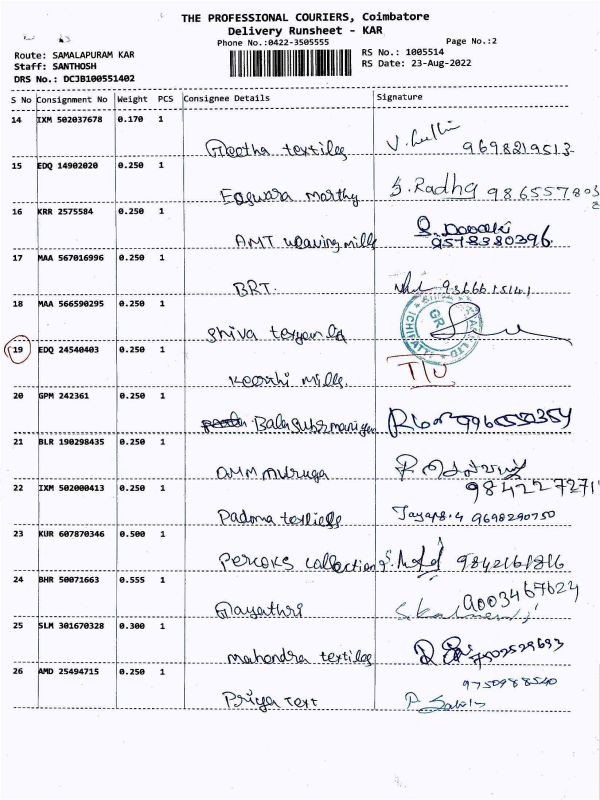 THE PROFESSIONAL COURIERS, Coimbatore
Delivery Runsheet - KAR
Phone No.:0422-3505555 Page No.:2
Route: SAMALAPURAM KAR RS No.: 1005514
Staff: SANTHOSH RS Date: 23-Aug-2022
DRS No.: DCJB100551402
S No Consignment No Weight PCS Consignee Details Signature
14 IXM 502037678 0.170 1
Geetha textiles 9698219513
15 EDQ 14902020 0.250 1
Eswara marthy S. Radha 986557803
16 KRR 2575584 0.250 1
AMT weaving mills 9578380396
17 MAA 567016996 0.250 1
BRT.
18 MAA 566590295 0.250 1
Shiva
19 EDQ 24540403 0.250 1
mills. T/U
20 GPM 242361 0.250 1
Balasubramaniyan
21 BLR 190298435 0.250 1
OMM muruga
9842272711
22 IXM 502000413 0.250 1
Padma textiles 9698290750
23 KUR 607870346 0.500 1
Percoks collections 9842161816
24 BHR 50071663 0.555 1
Gayathri 9003467624
25 SLM 301670328 0.300 1
mahendra textiles 7502529693
26 AMD 25494715 0.250 1
9750988540
Priya Text